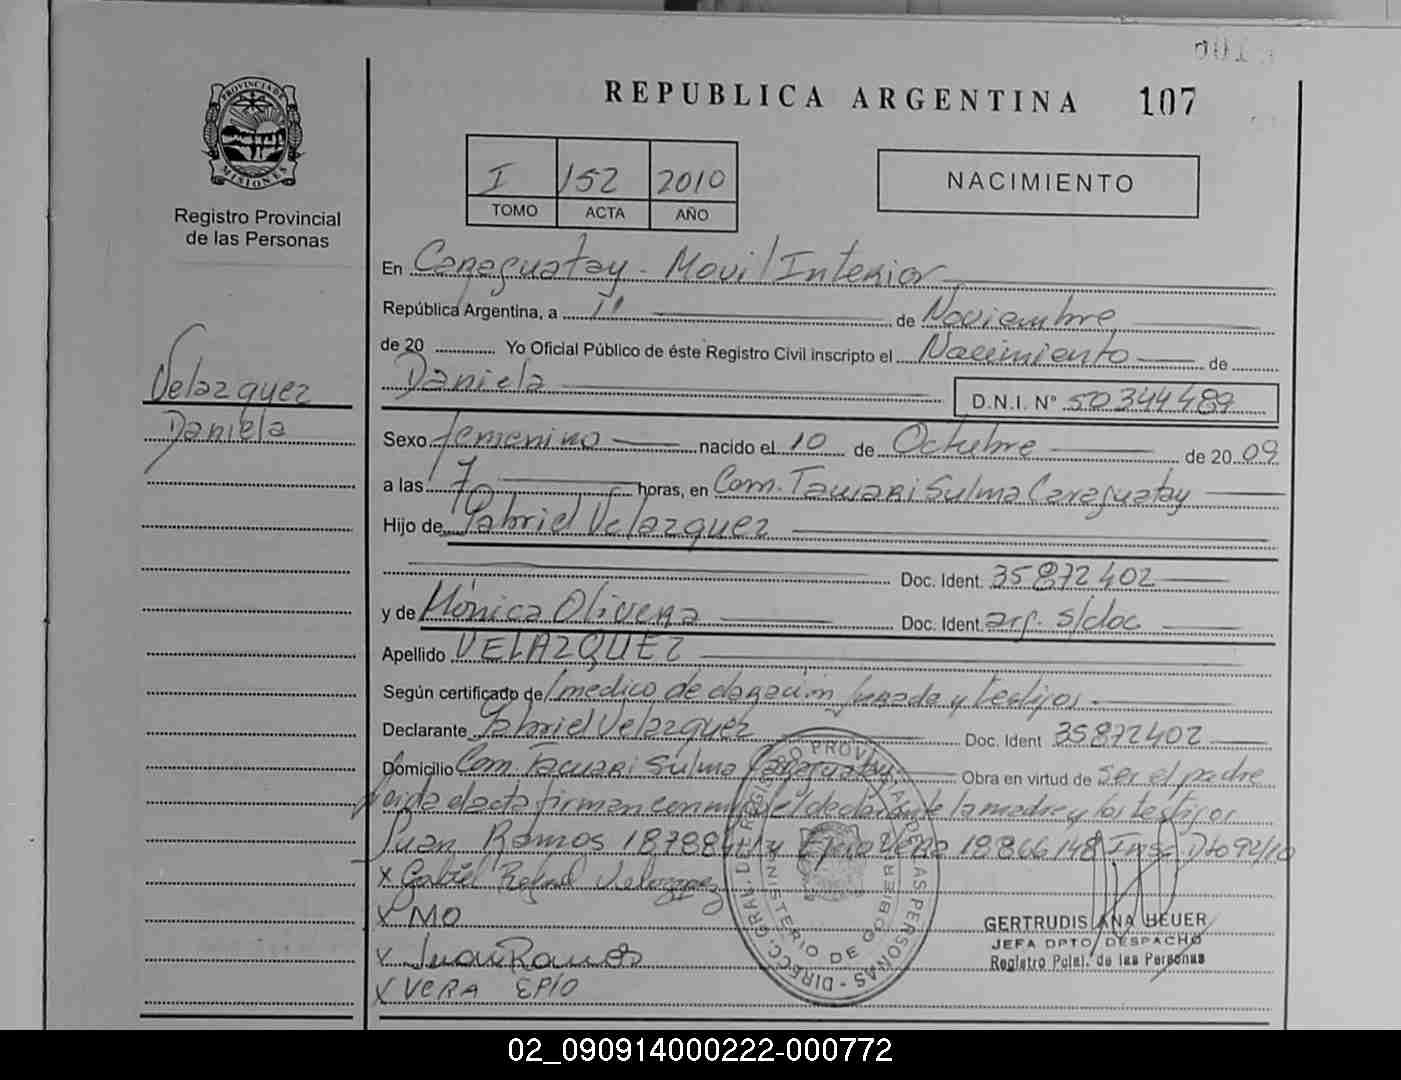 REPUBLICA ARGENTINA 107
PROVINCIA DE MISIONES
Registro Provincial
de las Personas
I 152 2010
TOMO ACTA AÑO
NACIMIENTO
En Caraguatay - Movil Interior
República Argentina, a 11 de Noviembre
de 20 Yo Oficial Público de éste Registro Civil inscripto el Nacimiento de
Daniela
D.N.I. N° 50344489
Velazquez
Daniela
Sexo femenino nacido el 10 de Octubre de 2009
a las 7 horas, en Com. Tacuari Sulma Caraguatay
Hijo de Gabriel Velazquez
Doc. Ident. 35872402
y de Mónica Olivera Doc. Ident. arg. s/doc
Apellido VELAZQUEZ
Según certificado de medico, declaración jurada y testigos
Declarante Gabriel Velazquez Doc. Ident 35872402
Domicilio Com. Tacuari Sulma Caraguatay Obra en virtud de ser el padre
leida el acta firman conmigo el declarante la madre y los testigos
Juan Ramos y Epio Vera 18866148 Insc. Dto 92/10
x Gabriel Rafael Velazquez
x MO
x Juan Ramos
x VERA EPIO
GERTRUDIS ANA HEUER
JEFA DPTO. DESPACHO
Registro Pcial. de las Personas
MINISTERIO DE GOBIERNO
02_090914000222-000772